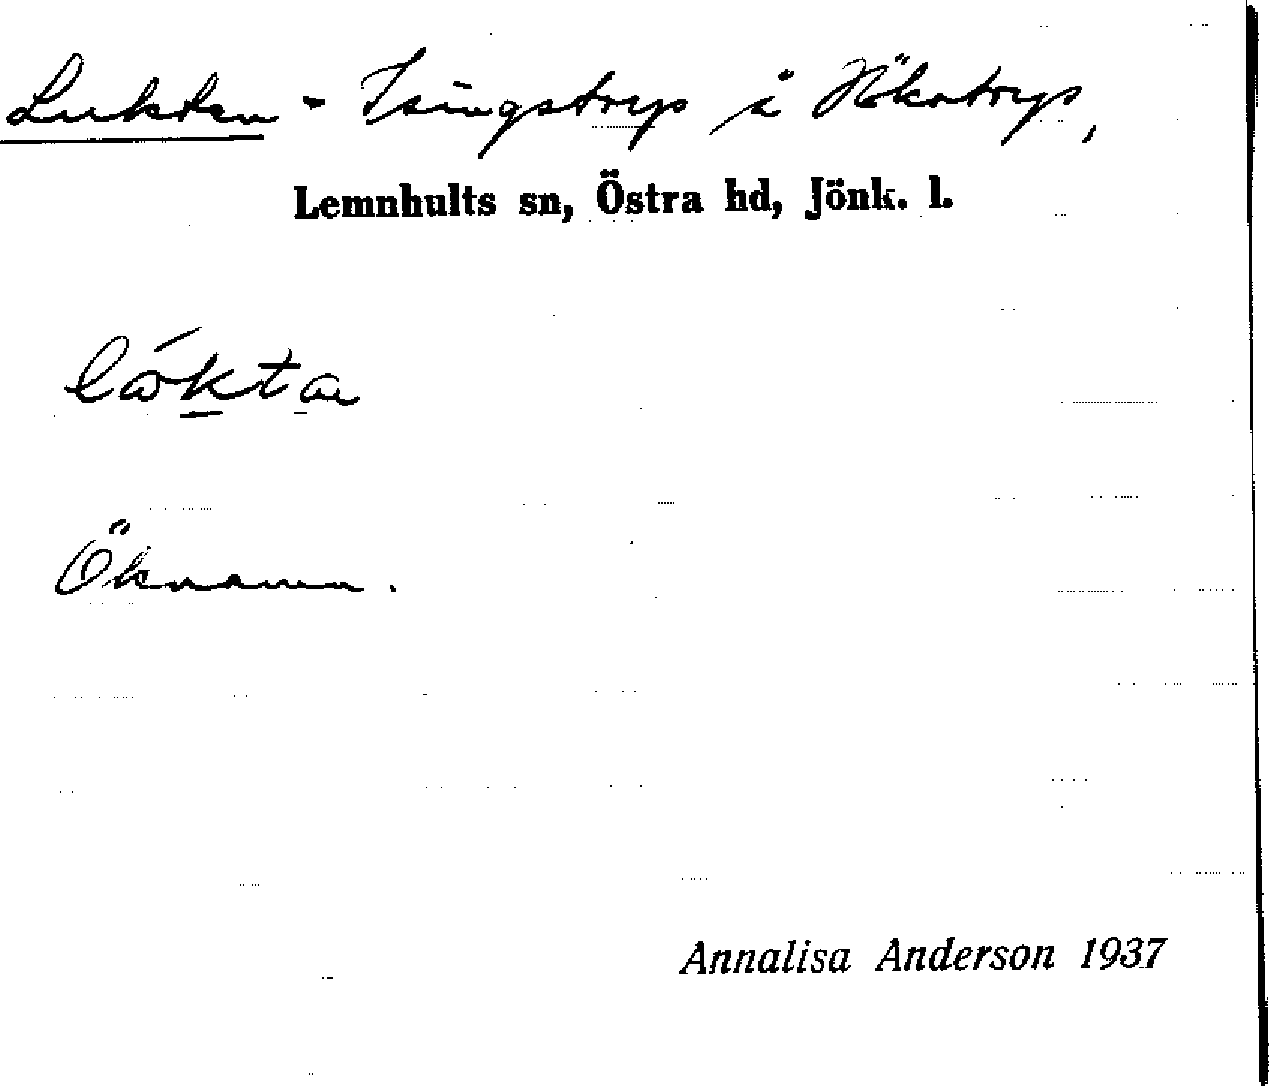 Lukten - Isingstryp i Hökatryp,
Lemnhults sn, Östra hd, Jönk. l.
Öknamn.
Annalisa Anderson 1937